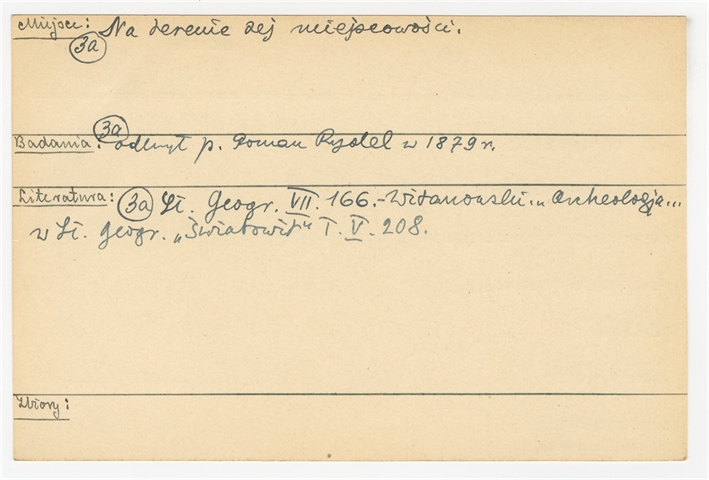 Miejsce: Na terenie tej miejscowości.
3a
3a
Badania: odkrył p. Roman Rydel w 1879 r.
Literatura: 3a Sł. Geogr. VII. 166.-Witanowski. „Archeologja...
w Sł. Geogr. „Światowit" T. V. 208.
Zbiory: